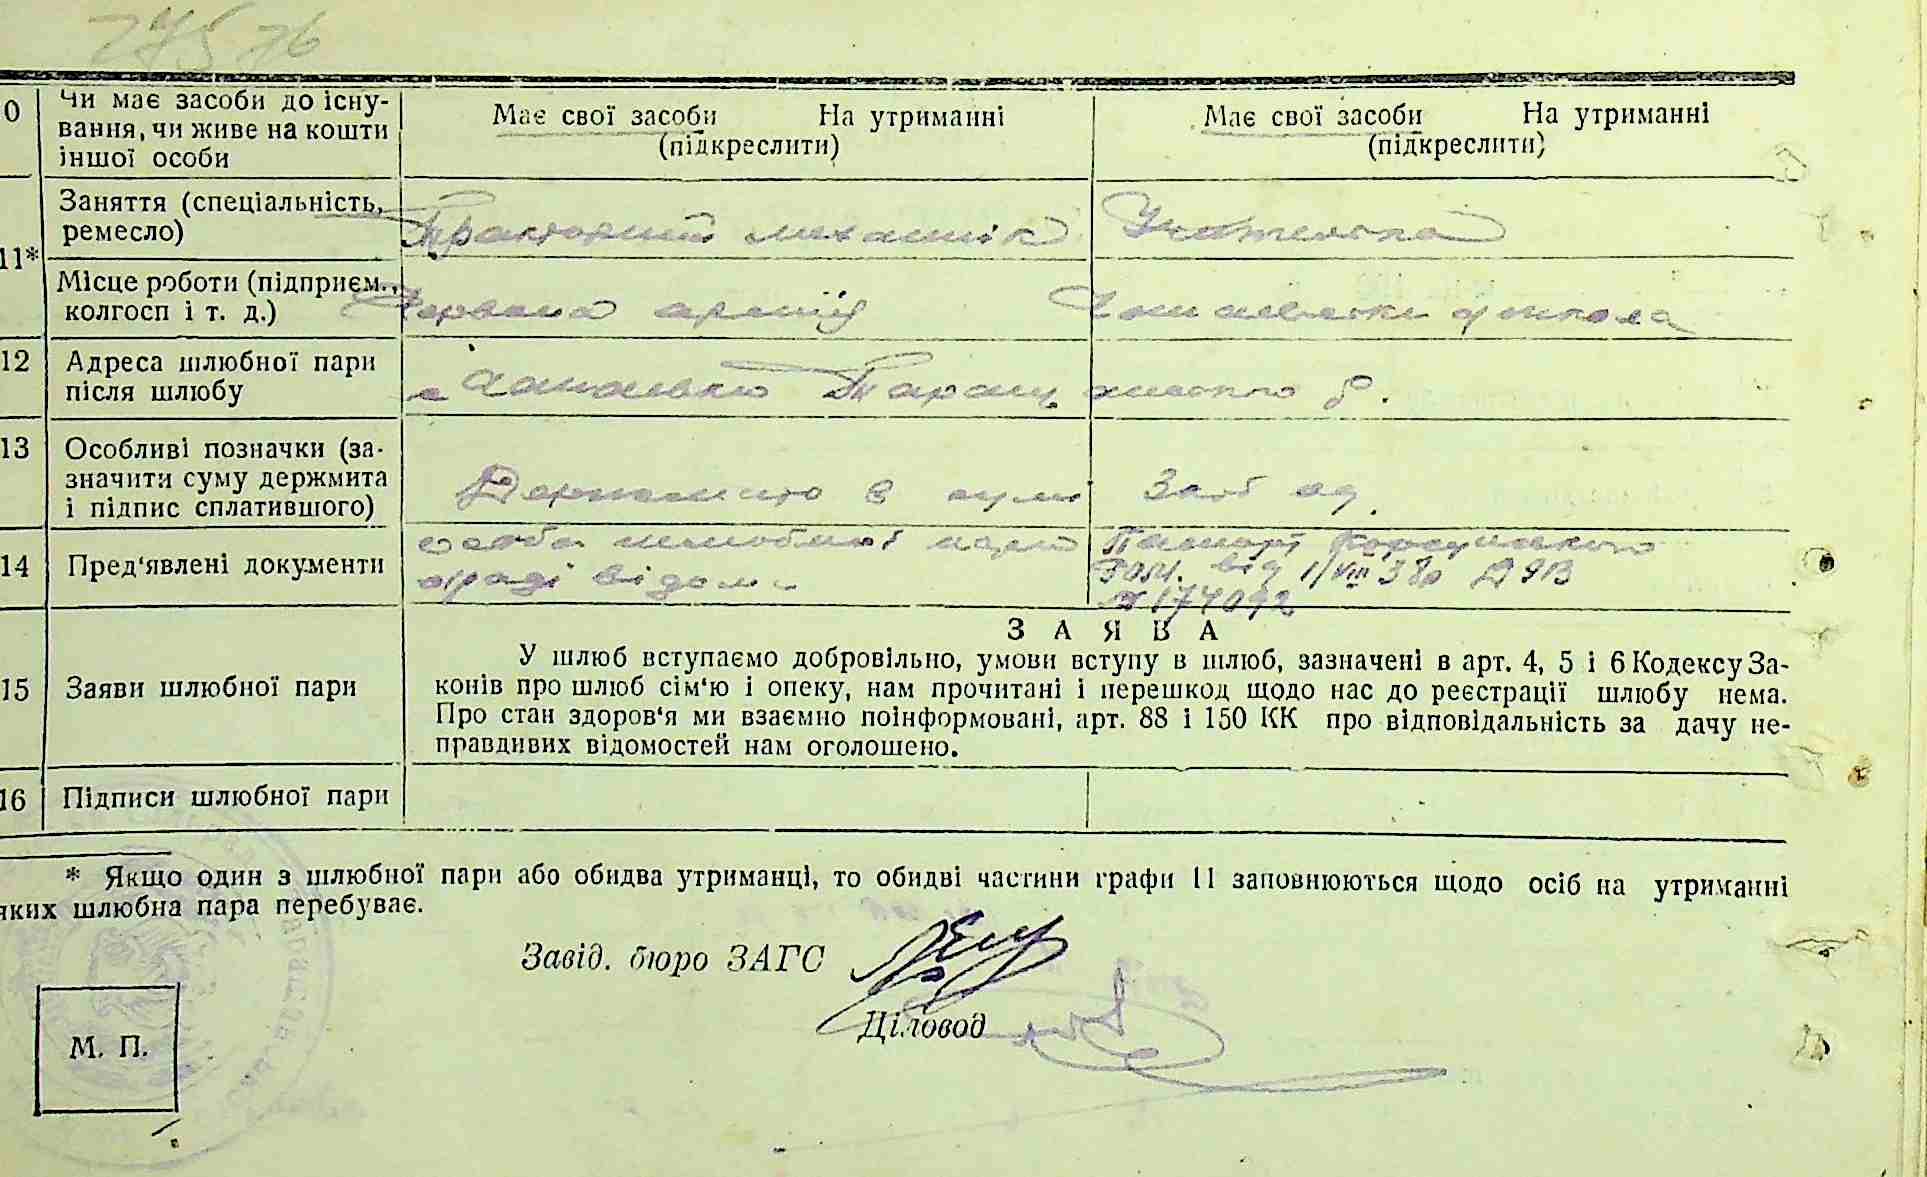 27576
0 Чи має засоби до існу-
вання, чи живе на кошти
іншої особи
Має свої засоби На утриманні
(підкреслити)
Має свої засоби На утриманні
(підкреслити)
11*
Заняття (спеціальність,
ремесло)
Тракторний механік
Учителька
Місце роботи (підприєм.,
колгосп і т. д.)
Червона армія
школа
12 Адреса шлюбної пари
після шлюбу
Таращанського р.
13 Особливі позначки (за-
значити суму держмита
і підпис сплатившого)
Держмито в сумі
14 Пред'явлені документи
особи шлюбної пари
раді відомі
Паспорт Корсунського
від 1/VIII 38р
№ 174092
З А Я В А
15 Заяви шлюбної пари
У шлюб вступаємо добровільно, умови вступу в шлюб, зазначені в арт. 4, 5 і 6 Кодексу За-
конів про шлюб сім'ю і опеку, нам прочитані і перешкод щодо нас до реєстрації шлюбу нема.
Про стан здоров'я ми взаємно поінформовані, арт. 88 і 150 КК про відповідальність за дачу не-
правдивих відомостей нам оголошено.
16 Підписи шлюбної пари
* Якщо один з шлюбної пари або обидва утриманці, то обидві частини графи 11 заповнюються щодо осіб на утриманні
яких шлюбна пара перебуває.
Завід. бюро ЗАГС
Діловод
М. П.